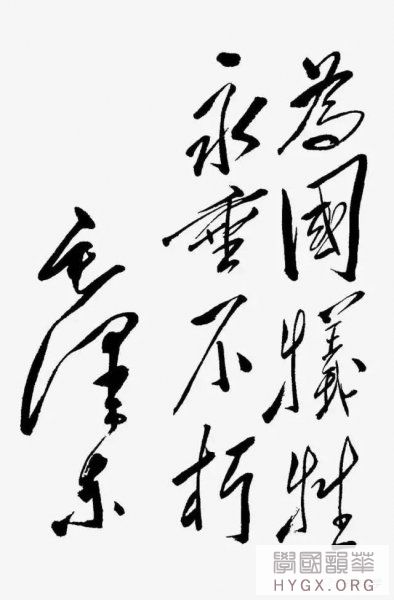 為國犧牲
永垂不朽
毛澤东
學國韻華
HYGX.ORG